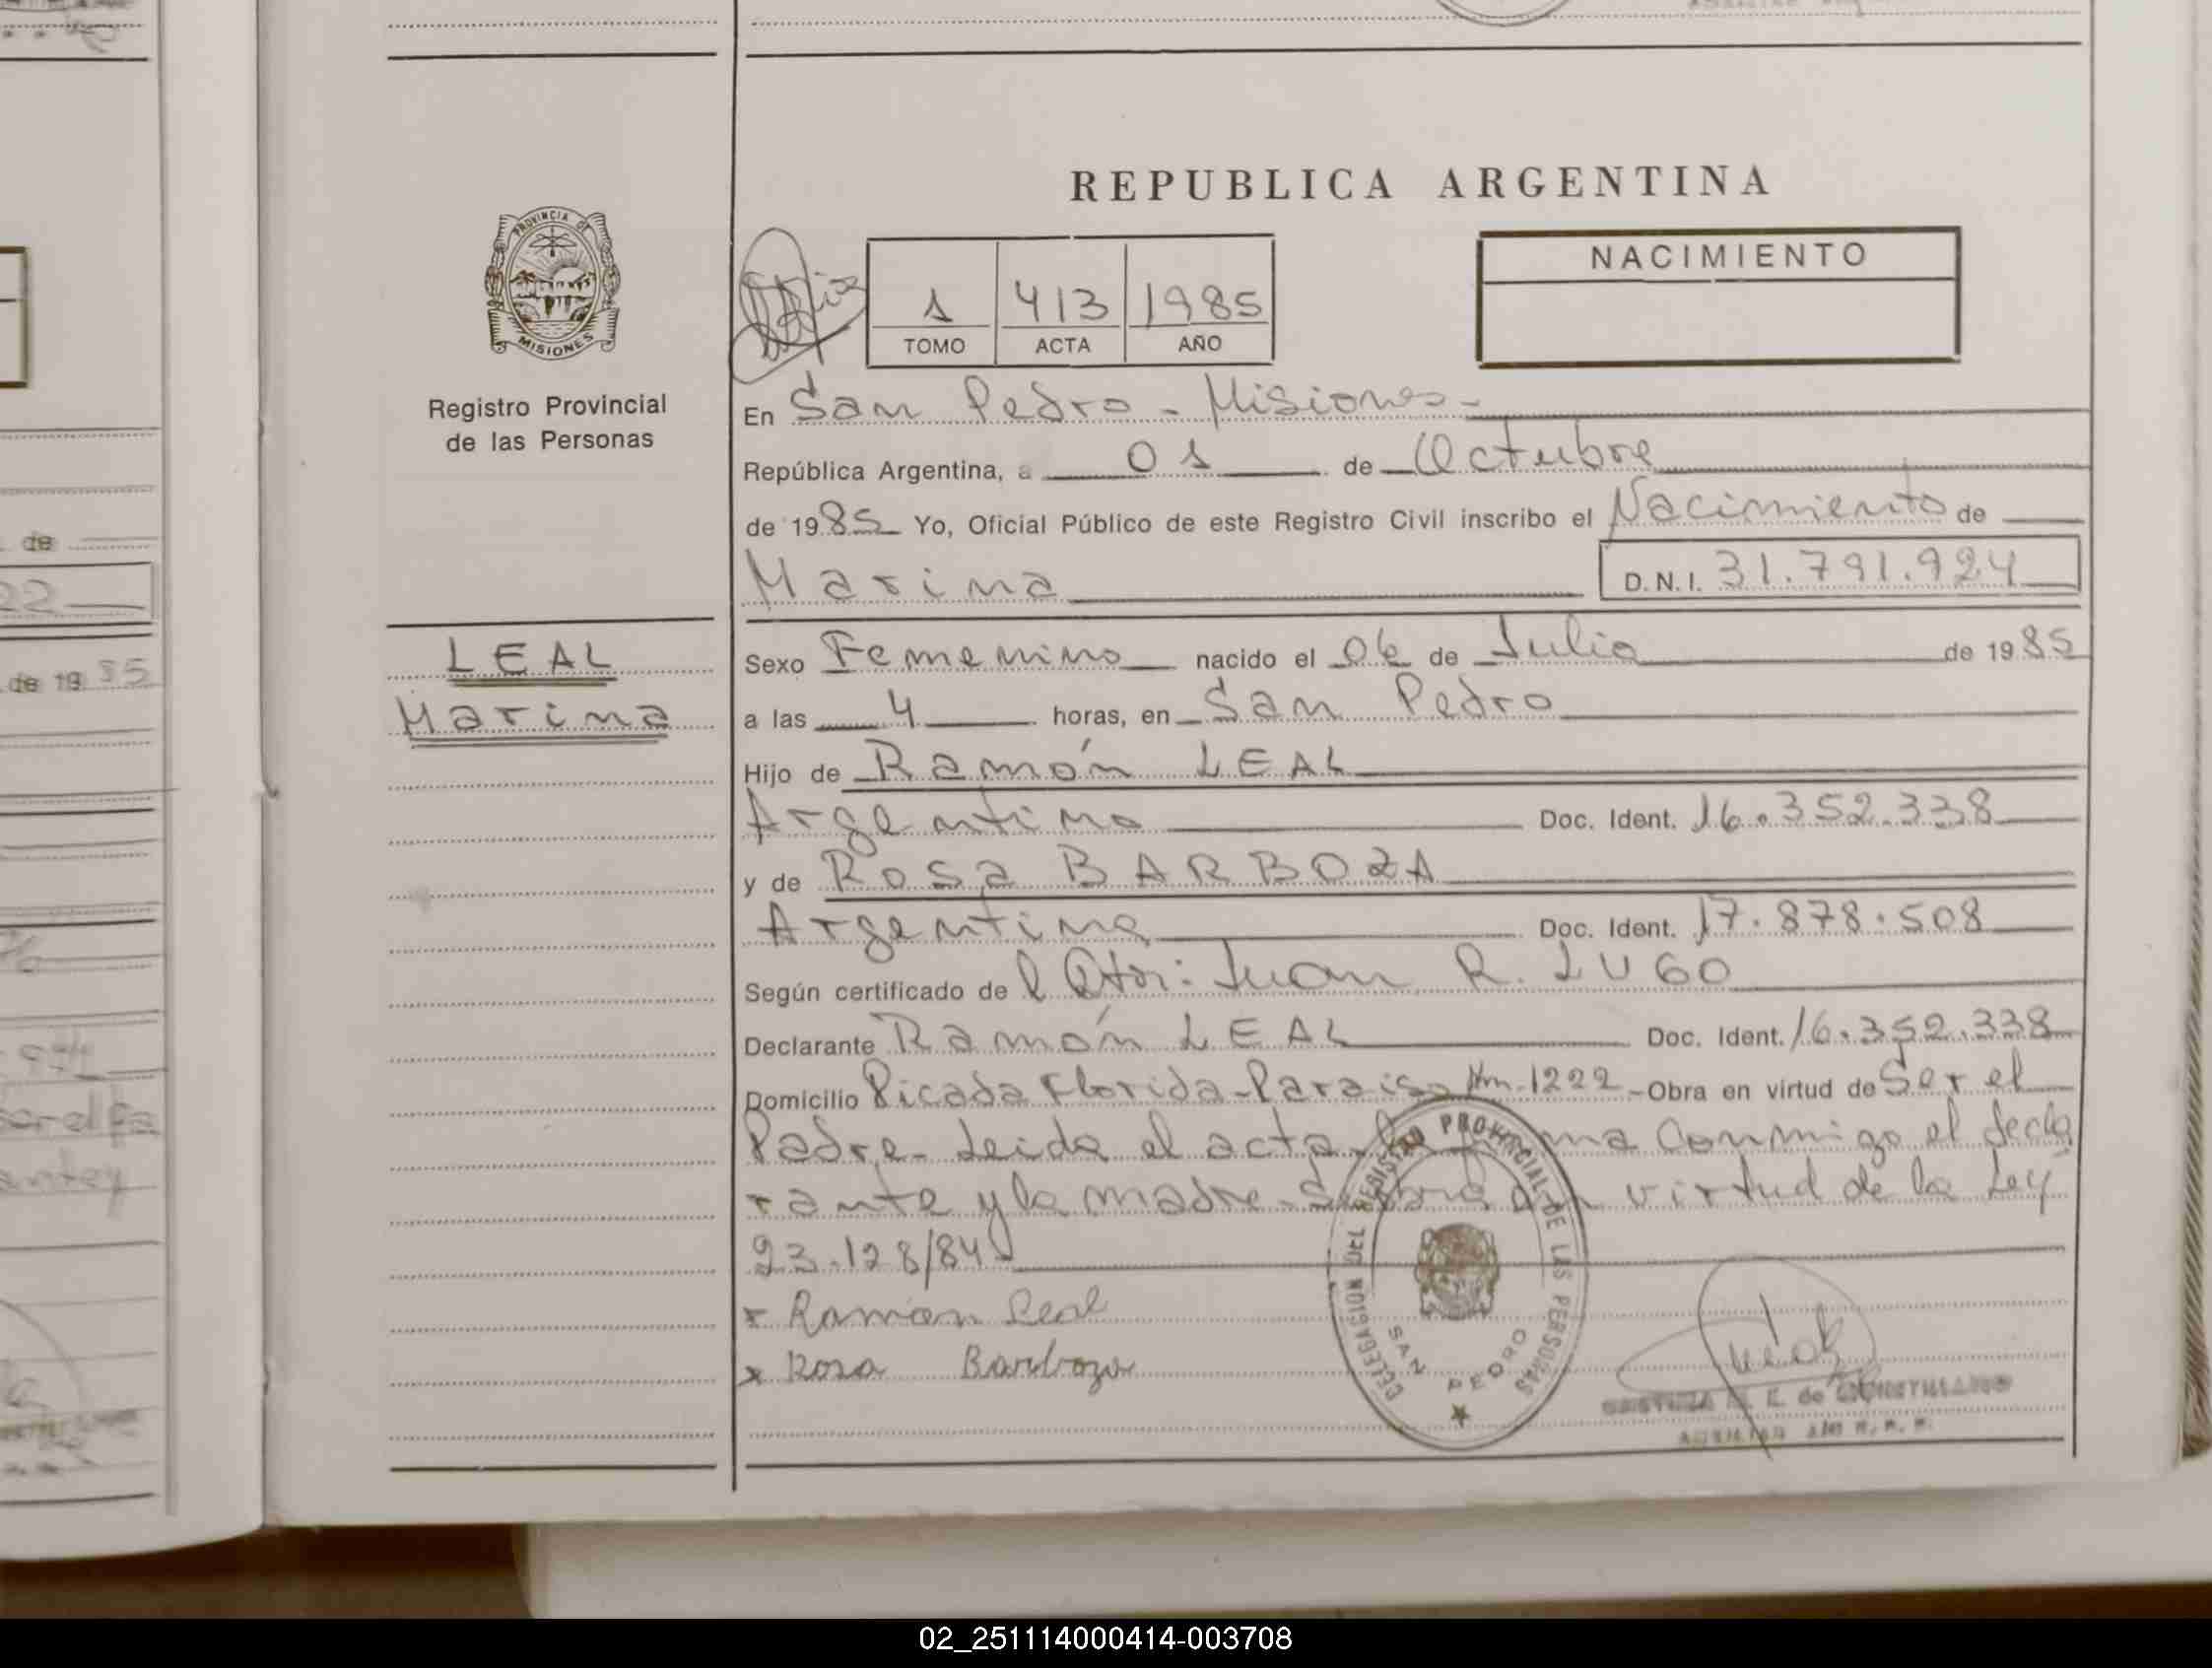 REPUBLICA ARGENTINA
PROVINCIA DE
MISIONES
Registro Provincial
de las Personas
LEAL
Marina
NACIMIENTO
1 413 1985
TOMO ACTA AÑO
En San Pedro - Misiones -
República Argentina, a 01 de Octubre
de 1985 Yo, Oficial Público de este Registro Civil inscribo el Nacimiento de
Marina D.N.I. 31.791.924
Sexo Femenino nacido el 06 de Julio de 1985
a las 4 horas, en San Pedro
Hijo de Ramón LEAL
Argentino Doc. Ident. 16.352.338
y de Rosa BARBOZA
Argentina Doc. Ident. 17.878.508
Según certificado de l Juan R. LUGO
Declarante Ramón LEAL Doc. Ident. 16.352.338
Domicilio Picada Florida-Paraiso Km.1222 - Obra en virtud de Ser el
Padre- Leida el acta la conmigo el decla
rante y la madre- virtud de la Ley
23.128/84
x Ramon Leal
x Rosa Barboza
DELEGACION DEL REGISTRO PROVINCIAL DE LAS PERSONAS
SAN PEDRO
de 1985
22
de
02_251114000414-003708